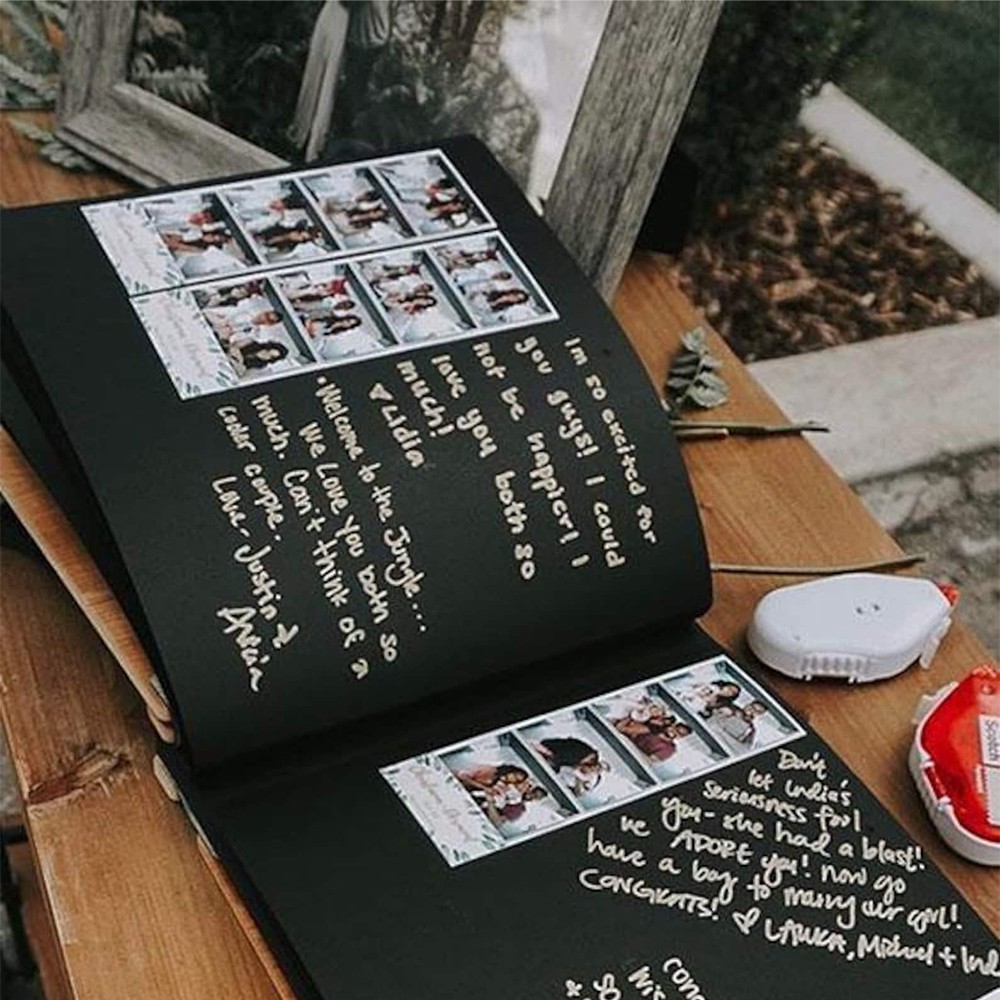 Im so excited for
you guys! I could
not be happier! I
love you both so
much!
♥ Lidia
·Welcome to the Jungle....
We Love you both so
much. Can't think of a
cooler couple.
Love - Justin &
Don't
let India's
seriousness fool
you - she had a blast!
we ADORE you! now go
have a boy to marry our girl!
CONGRATS! ♥ LAURA, Michael + Ind
Cong
Wis
so
&
Scotch